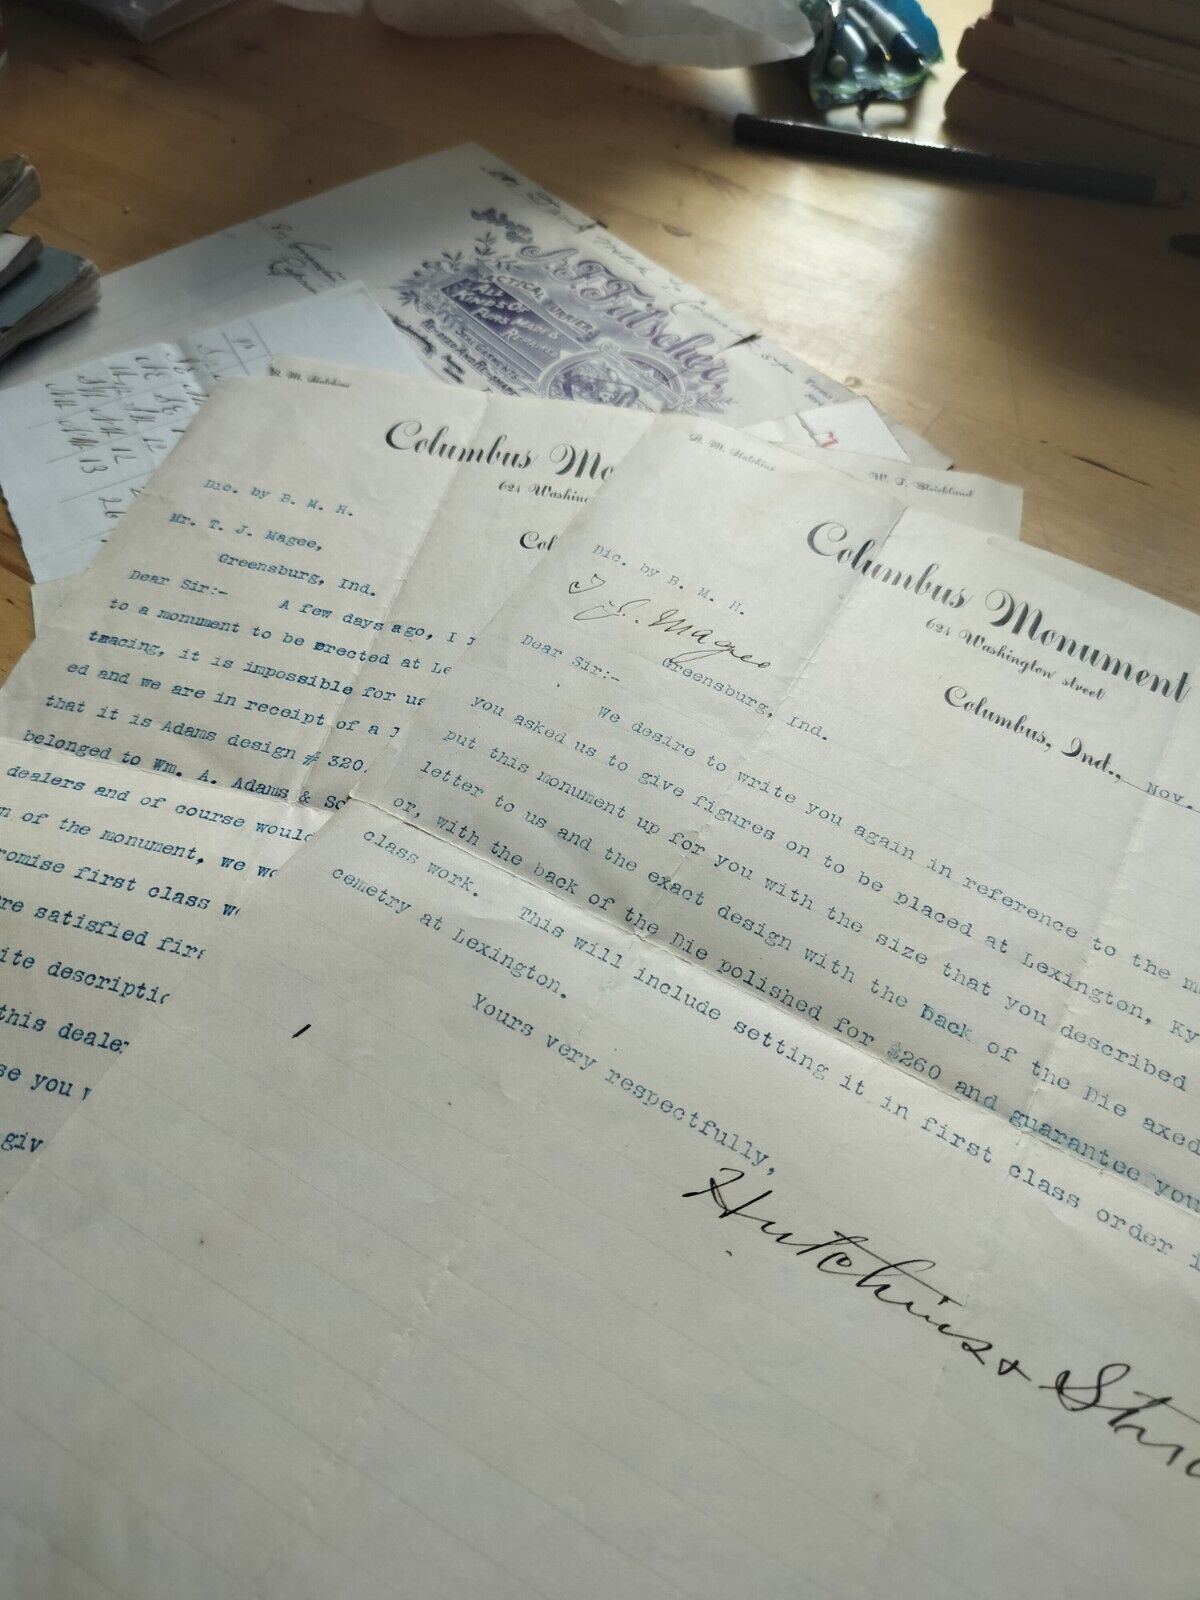 J. F. Fritscher,
ALL
KINDS OF
FURS MADE &
B. M. Hutkins
Columbus Mo
624 Washing
Col
Dic. by B. M. H.
Mr. T. J. Magee,
Greensburg, Ind.
Dear Sir:-
A few days ago, I
to a monument to be erected at Le
tracing, it is impossible for us
ed and we are in receipt of a
that it is Adams design # 320
belonged to Wm. A. Adams & So
dealers and of course would
n of the monument, we wo
romise first class wo
re satisfied firs
ite descriptio
this dealer
se you
giv
B. M. Hutkins
W. F. Strickland
Columbus Monument
624 Washington street
Columbus, Ind., Nov.
Dic. by B. M. H.
T. J. Magee
Greensburg, Ind.
Dear Sir:-
We desire to write you again in reference to the m
you asked us to give figures on to be placed at Lexington, Ky
put this monument up for you with the size that you described
letter to us and the exact design with the back of the Die axed
or, with the back of the Die polished for $260 and guarantee you
class work. This will include setting it in first class order i
cemetry at Lexington.
Yours very respectfully,
Hutchins & Stric